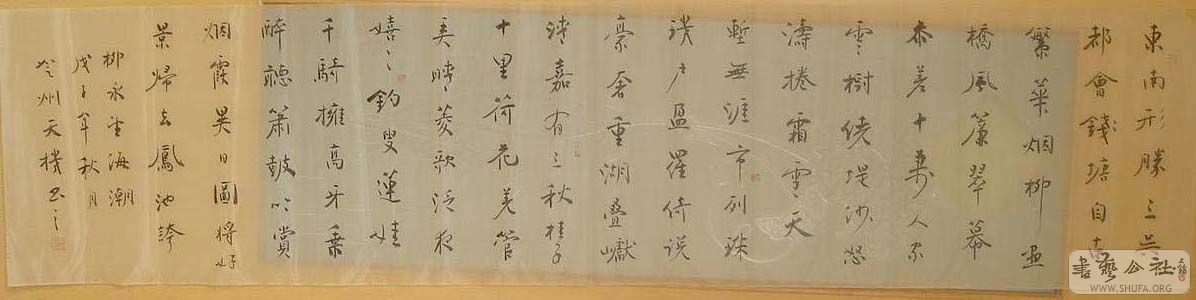 東南形勝三吳
都會錢塘自古
繁華烟柳画
橋風簾翠幕
参差十萬人家
雲樹繞堤沙怒
濤捲霜雪天
塹無涯市列珠
璣户盈羅绮竞
豪奢重湖疊巘
清嘉有三秋桂子
十里荷花羌管
弄晴菱歌泛夜
嬉〻釣叟蓮娃
千騎擁高牙乘
醉聽簫鼓吟賞
烟霞異日圖將好
景歸去鳳池誇
柳永望海潮
戊子年秋月
州天機书之
書藝公社
WWW.SHUFA.ORG